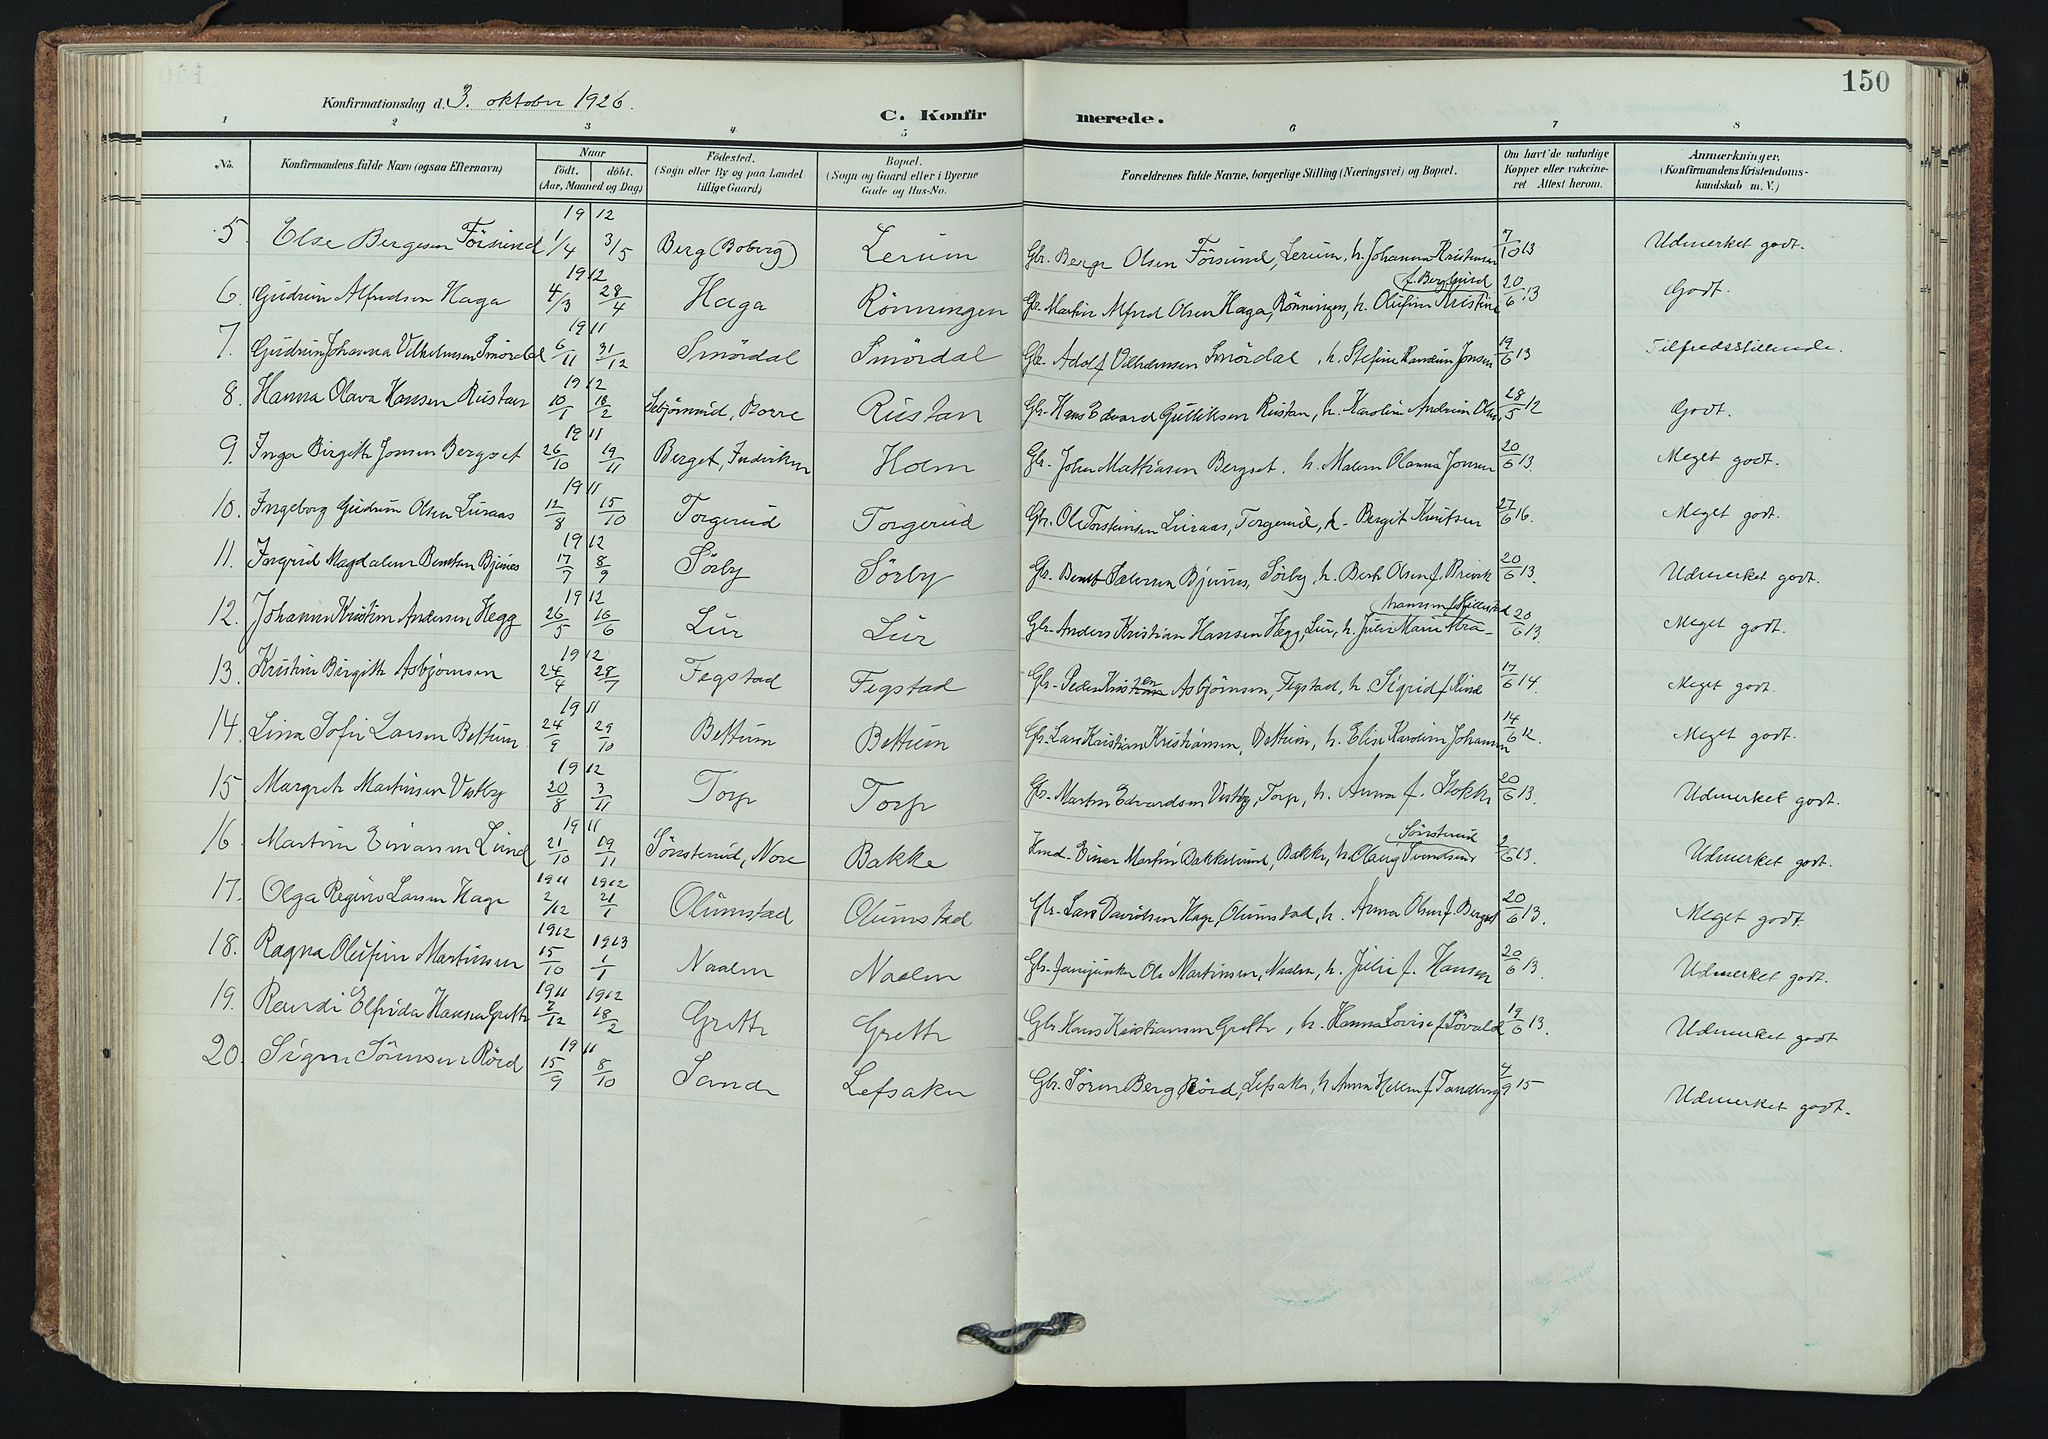 150
Konfirmationsdag d. 3. oktober 1926.
C. Konfirmerede.
1 2 3 4 5 6 7 8
No. Konfirmandens fulde Navn (ogsaa Efternavn) Naar født. døbt. (Aar, Maaned og Dag) Fødested. (Sogn eller By og paa Landet tillige Gaard) Bopæl. (Sogn og Gaard eller i Byerne Gade og Hus-No. Forældrenes fulde Navne, borgerlige Stilling (Næringsvei) og Bopæl. Om havt de naturlige Kopper eller vakcineret Attest herom. Anmærkninger. (Konfirmandens Kristendomskundskab m. V.)
5 Else Bergesen Försund 1912 1/4 3/5 Berg (Boberg) Lerum Gbr. Berge Olsen Försund, Lerum, h. Johanna Kristensen 7/10 13 Udmerket godt.
6. Gudrun Alfredsen Haga 1912 4/3 28/4 Haga Rönningen Gbr. Martin Alfred Olsen Haga, Rönningen, h. Olufine Kristine 20/6 13 Godt.
7. Gudrun Johanna Vilhelmsen Smördal 1911 6/11 31/12 Smördal Smördal Gbr. Adolf Vilhelmsen Smördal, h. Stefine Jonsen 19/6 13 Tilfredsstillende.
8. Hanna Olava Hansen Rustan 1912 10/1 18/2 Borre Rustan Gbr. Hans Edvard Gulliksen Rustan, h. Karoline Andrine Olsen 28/5 12 Godt.
9. Inga Birgitte Jonsen Bergset 1911 26/10 19/11 Berget, Holm Gbr. John Mathiasen Bergset, h. Malene Olanna Jonsen 20/6 13. Meget godt.
10. Ingeborg Gudrun Olsen Luraas 1911 12/8 15/10 Torgerud Torgerud Gbr. Ole Torsteinsen Luraas, Torgerud, h. Bergit Knutsen 27/6 16. Meget godt.
11. Ingrid Magdalene Bentsen Bjunes 1912 17/7 8/9 Sörby Sörby Gbr. Bendt Bjunes, Sörby, h. Berte Olsen f. 20/6 13. Udmerket godt.
12. Johanne Kristine Andersen Hegg 1912 26/5 16/6 Lur Lur Gbr. Anders Kristian Hansen Hegg, Lur, h. Julie Marie Abrahamsen f. 20/6 13. Meget godt.
13. Kristine Birgitte Asbjörnsen 1912 24/4 28/7 Fegstad Fegstad Gbr. Peder Kristen Asbjörnsen, Fegstad, h. Sigrid f. 17/6 14. Meget godt.
14. Lina Sofie Larsen Bettum 1911 24/9 29/10 Bettum Bettum Gbr. Lars Kristian Kristiansen, Bettum, h. Elise Karoline Johansen 14/6 12. Meget godt.
15 Margrete Martinsen Vestby 1912 20/8 3/11 Torp Torp Gbr. Martin Edvardsen Vestby, Torp, h. Anna f. Stokke 20/6 13. Udmerket godt.
16. Martine Einarsen Lund 1911 21/10 19/11 Sönsterud, Nore Bakke Einar Martin Bakkelund, Bakke, h. Olaug Svendsen Sönsterud 2/6 13. Udmerket godt.
17. Olga Regine Larsen Hage 1911 2/12 1912 21/1 Olumstad Olumstad Gbr. Lars Davidsen Hage, Olumstad, h. Anna Olsen f. Berget 20/6 13. Meget godt.
18. Ragna Olufine Martinsen 1912 15/10 1913 1/1 Naalen Naalen Gbr. Ole Martinsen, Naalen, h. Julie f. Hansen 20/6 13. Udmerket godt.
19. Randi Elfrida Hansen Grette 1911 7/12 1912 18/2 Grette Grette Gbr. Hans Kristiansen Grette, h. Hanna Lovise f. Lövald 19/6 13. Udmerket godt
20. Signe Sörensen Rörd 1911 15/9 8/10 Sande Lefsaker Gbr. Sören Berg Rörd, Lefsaker, h. Anna Helene f. Tandberg 4/9 15 Udmerket godt.